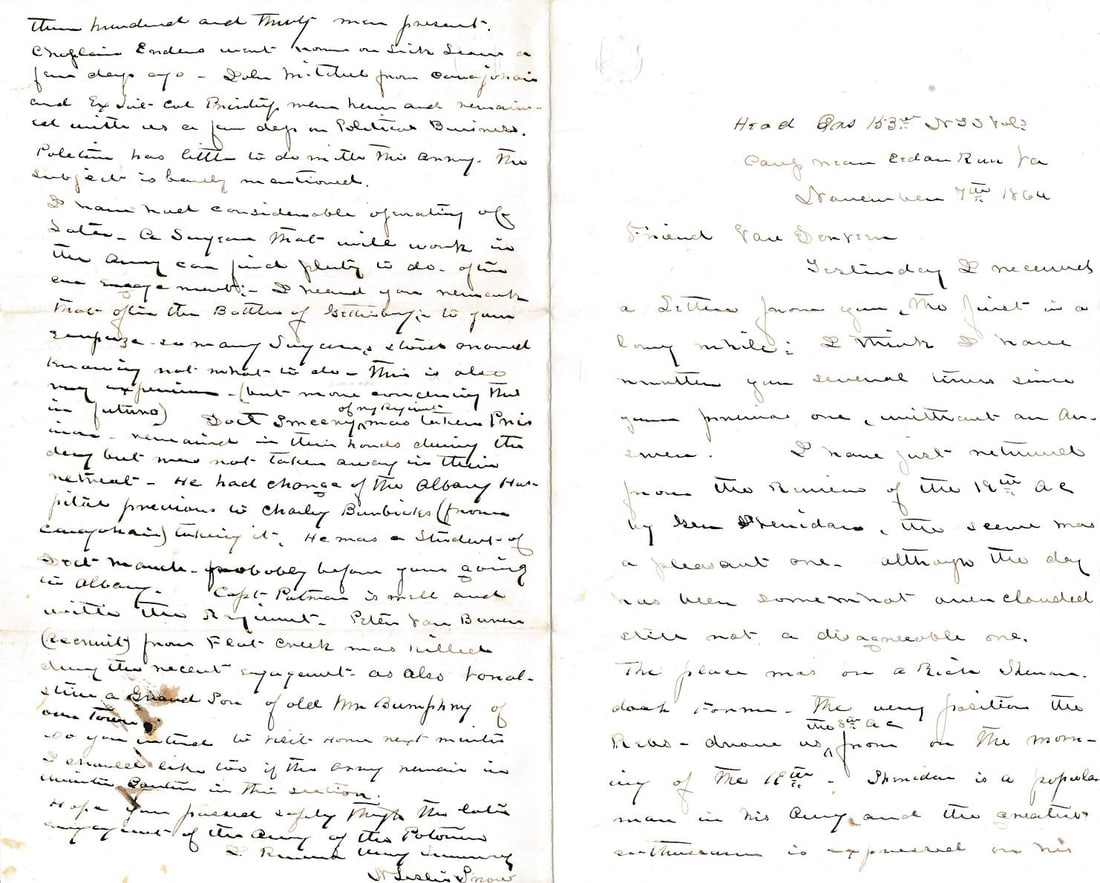 Head Qrs 153rd N Y Vols
Camp near Cedar Run Va
November 7th 1864
Friend Van
Yesterday I received
a Letter from you, the first in a
long while; I think I have
written you several times since
your previous one, without an An-
swer. I have just returned
from the Review of the 19th A C
by Gen Sheridan, the scene was
a pleasant one. although the day
has been somewhat overclouded
still not a disagreeable one.
The place was on a Rich Shenan-
doah Farm. The very position the
Rebs drove us the 8th A C from on the morn-
ing of the 18th. Sheridan is a popular
man in his Army and the greatest
enthusiasm is expressed on his
three hundred and thirty men present.
Chaplain Enders went home on Sick Leave a
few days ago - John Mitchel from Canajoharie
and Ex Lieut Col were here and remain-
ed with us a few days on Political Business.
Politics has little to do with this Army. The
subject is barely mentioned.
I have had considerable operating of
late - A Surgeon that will work in
the Army can find plenty to do after
an engagement - I heard you remark
that after the Battle of Gettisburg to your
surprise so many Surgeons stood around
knowing not what to do - This is also
my experience - (but more concerning this
in future) Doct Sweeny of my Regiment was taken Pris
oner - remained in their hands during the
day but was not taken away in their
retreat - He had charge of the Albany Hos-
pital previous to Charley Burbicks (from
Canajoharie) taking it. He was a Student of
Doct March - probobly before your going
to Albany. Capt Putman is well and
with the Regiment. Peter Van Buren
(recruit) from Flat Creek was killed
during the recent engagement as also
a Grand Son of old Mr Bumphry of
our Town
So you intend to visit Home next winter
I should like too if the Army remain in
Winter Quarters in this section.
Hope you passed safely through the late
engagement of the Army of the Potomac
I Remain Very Sincerely
N Leslie Snow